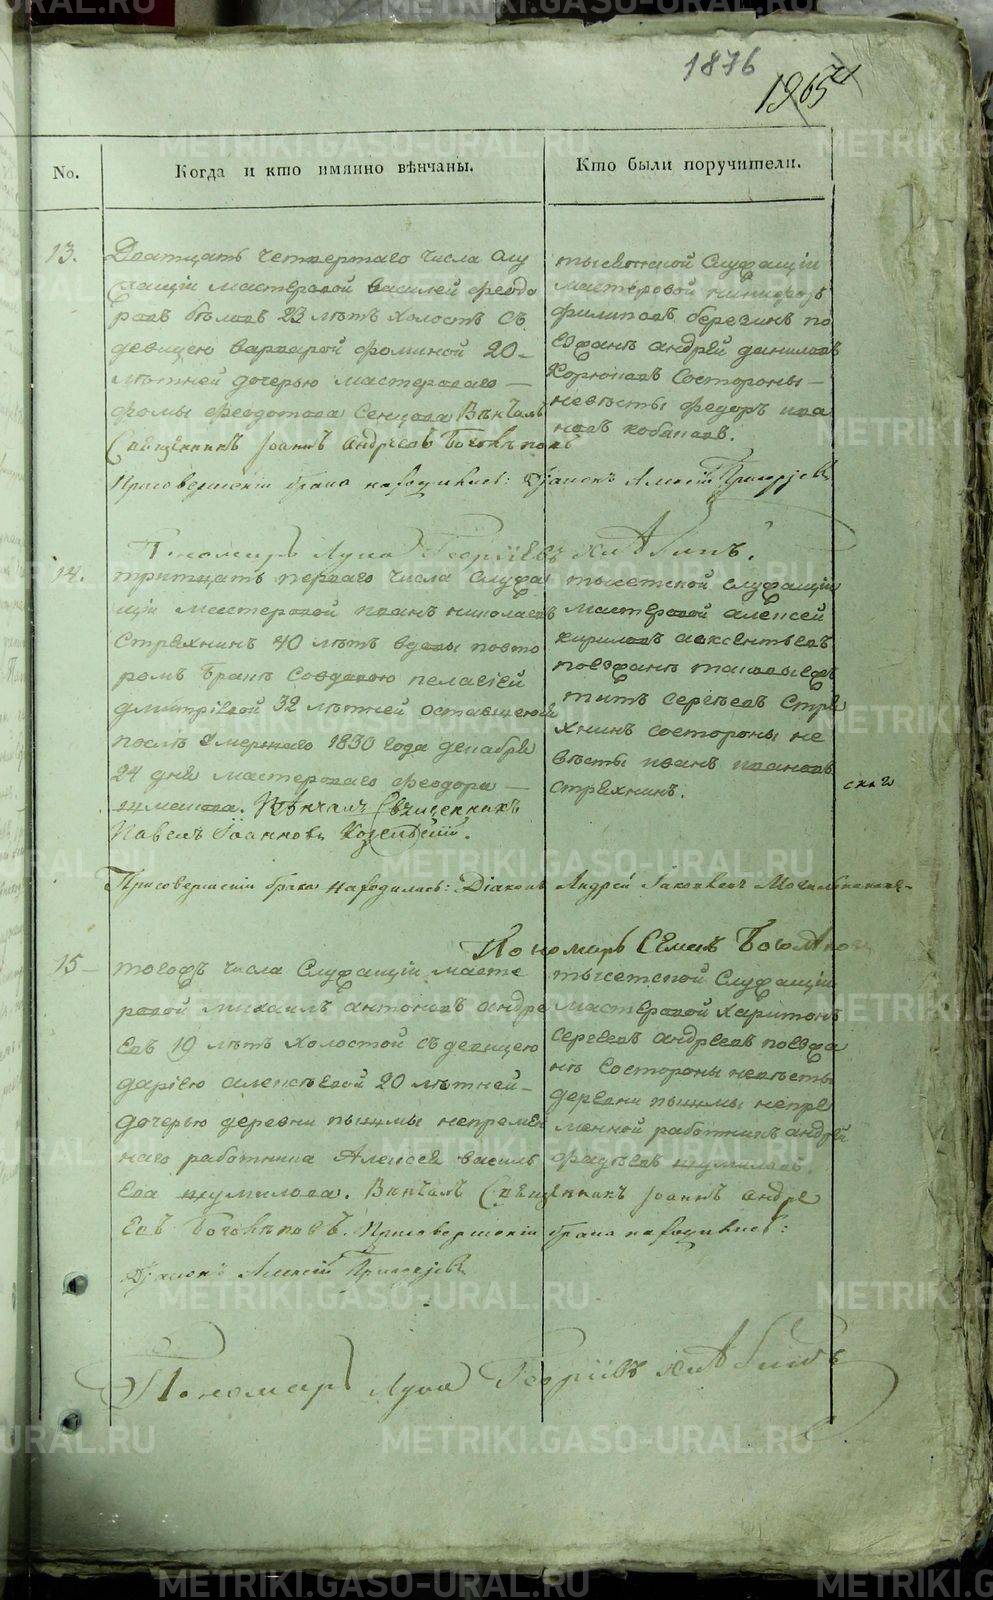 1876
1965
No.
Когда и кто имянно вѣнчаны.
Кто были поручители.
13.
Дватцать четвертаго числа слу
жащiй мастеровой василей феодо
ровъ бѣловъ 23 лѣтъ холостъ съ
девицею варварой фоминой 20-
лѣтней дочерью мастероваго —
фомы феодотова сенцова Вѣнчалъ
Священникъ Iоаннъ андреевъ
тысяцской Служащiй
мастеровой никифоръ
филиповъ березинъ по
езжанъ андрей даниловъ
Состороны —
невѣсты федоръ ива
новъ кобаковъ.
Присовершенiи брака находились: Дiаконъ Алексiй Григорьевъ
Пономарь Лука Георгiевъ
14.
тритцать перваго числа служа
щiй мастеровой иванъ николаевъ
стряхнинъ 40 лѣтъ вдовы повто
ромъ бракѣ совдовою пелагiей
дмитрiевой 32 лѣтней оставшеюся
послѣ умершаго 1830 года декабря
24 дня мастероваго феодора —
Вѣнчалъ Священникъ
Павелъ Iоанновъ Козельскiй.
тысетской служащiй
мастеровой алексей
кириловъ авксентьевъ
поезжанъ
титъ сергеевъ стря
хнинъ состороны не
вѣсты иванъ ивановъ
стряхнинъ.
Присовершенiи брака находились: Дiаконъ Андрей Iаковлевъ
Пономарь Семенъ
15-
тогожъ числа Служащiй масте
ровой михаилъ антоновъ андре
евъ 19 лѣтъ холостой съ девицею
дарiею алексѣевой 20 лѣтней-
дочерью деревни пышмы непремен
наго работника Алексея василь
ева шумилова. Вѣнчалъ Священникъ Iоаннъ андре
евъ
тысетской Служащiй
мастеровой харитонъ
сергеевъ андреевъ поезжа
нѣ состороны невѣсты
деревни пышмы непре
менной работникъ андрей
шумиловъ.
Присовершенiи брака находились:
Дiаконъ Алексiй Григорьевъ
Пономарь Лука Георгiевъ
METRIKI.GASO-URAL.RU